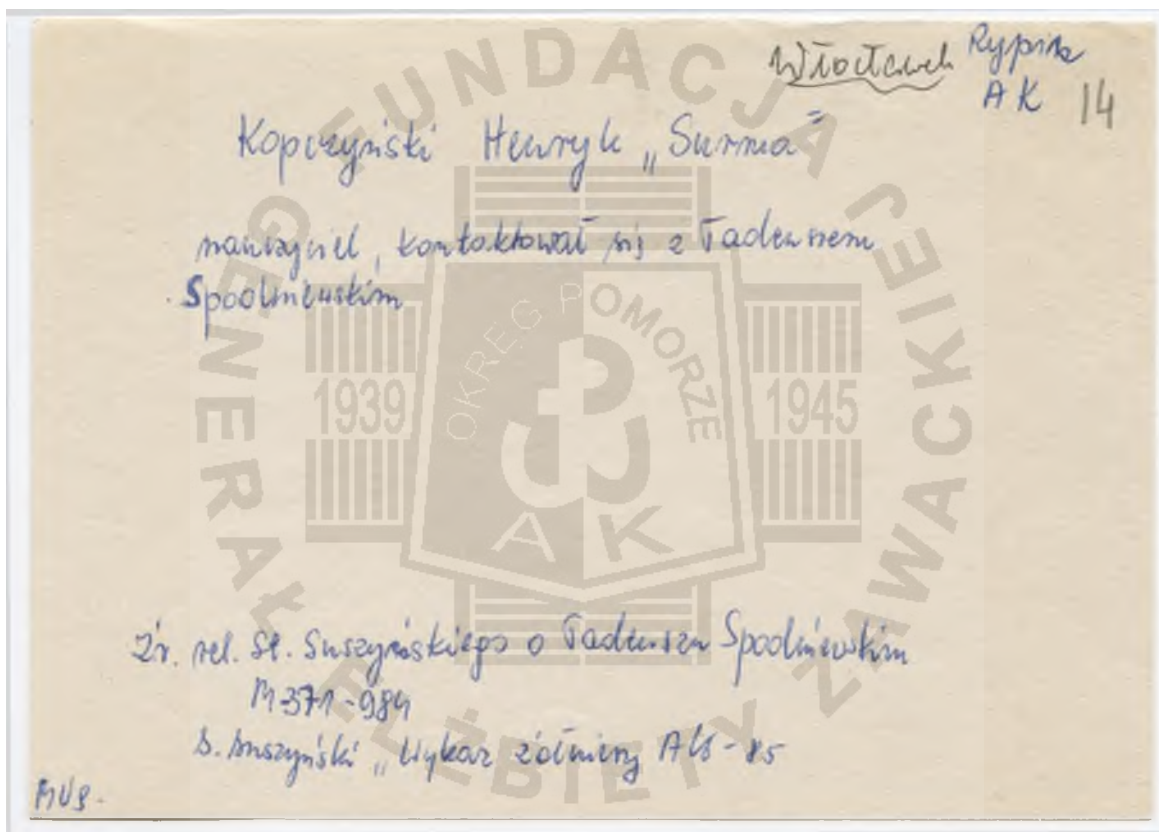 Włocławek Rypin
AK 14
Kopczyński Henryk „Surma"
nauczyciel, kontaktował się z Tadeuszem
Spodniewskim
Źr. rel. St. Suszyńskiego o Tadeuszu Spodniewskim
M-371-984
S. Suszyński „Wykaz żołnierzy AK - 85
FUNDACJA
GENERAŁ ELŻBIETY ZAWACKIEJ
OKRĘG POMORZE
1939
1945
AK